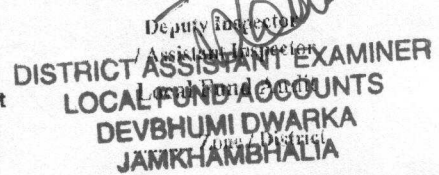 Deputy Inspector
/ Assistant Inspector
DISTRICT ASSISTANT EXAMINER
Local Fund Audit
t LOCAL FUND ACCOUNTS
DEVBHUMI DWARKA
Zone / District
JAMKHAMBHALIA